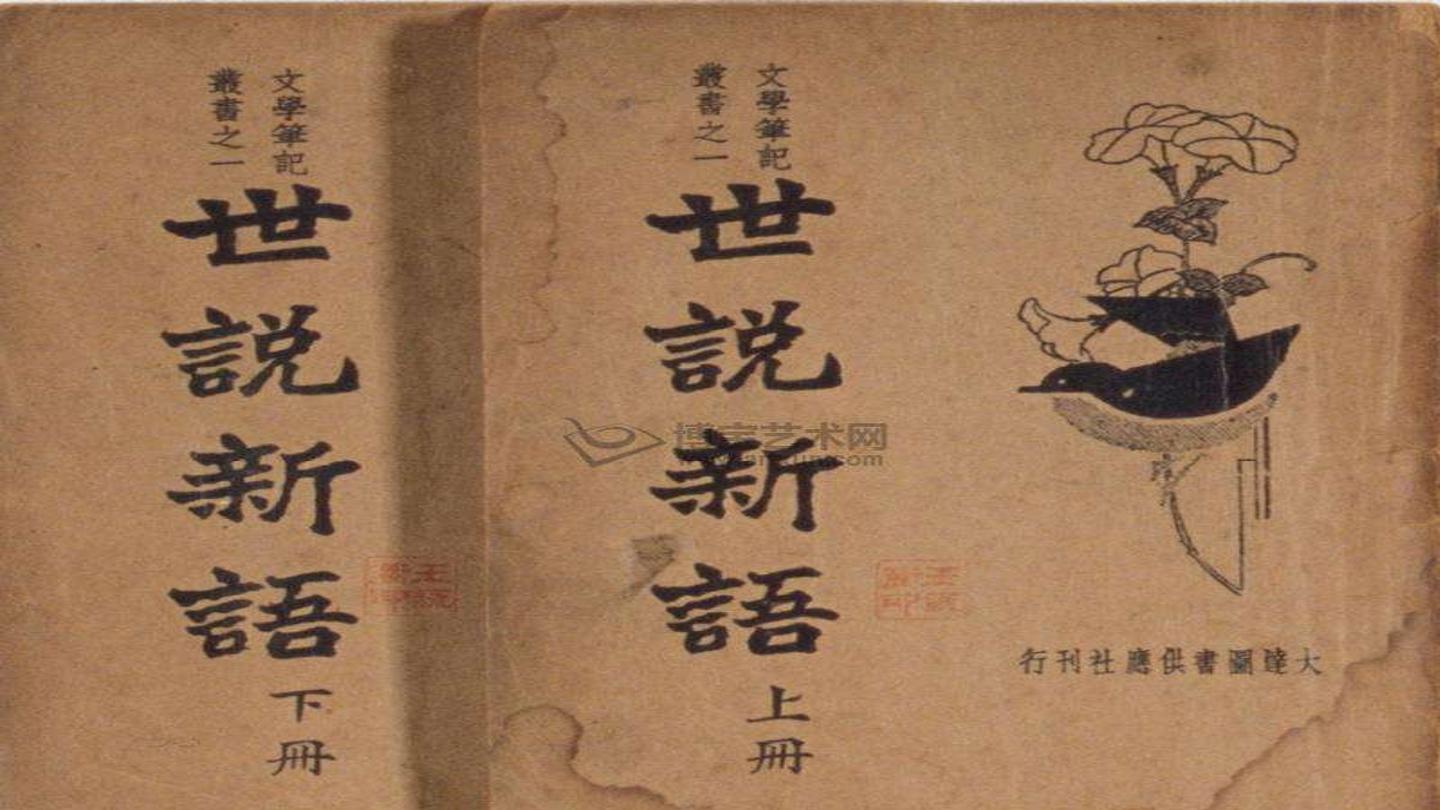 文學筆記
叢書之一
世說新語
上冊
大達圖書供應社刊行
文學筆記
叢書之一
世說新語
下冊
博宝艺术网